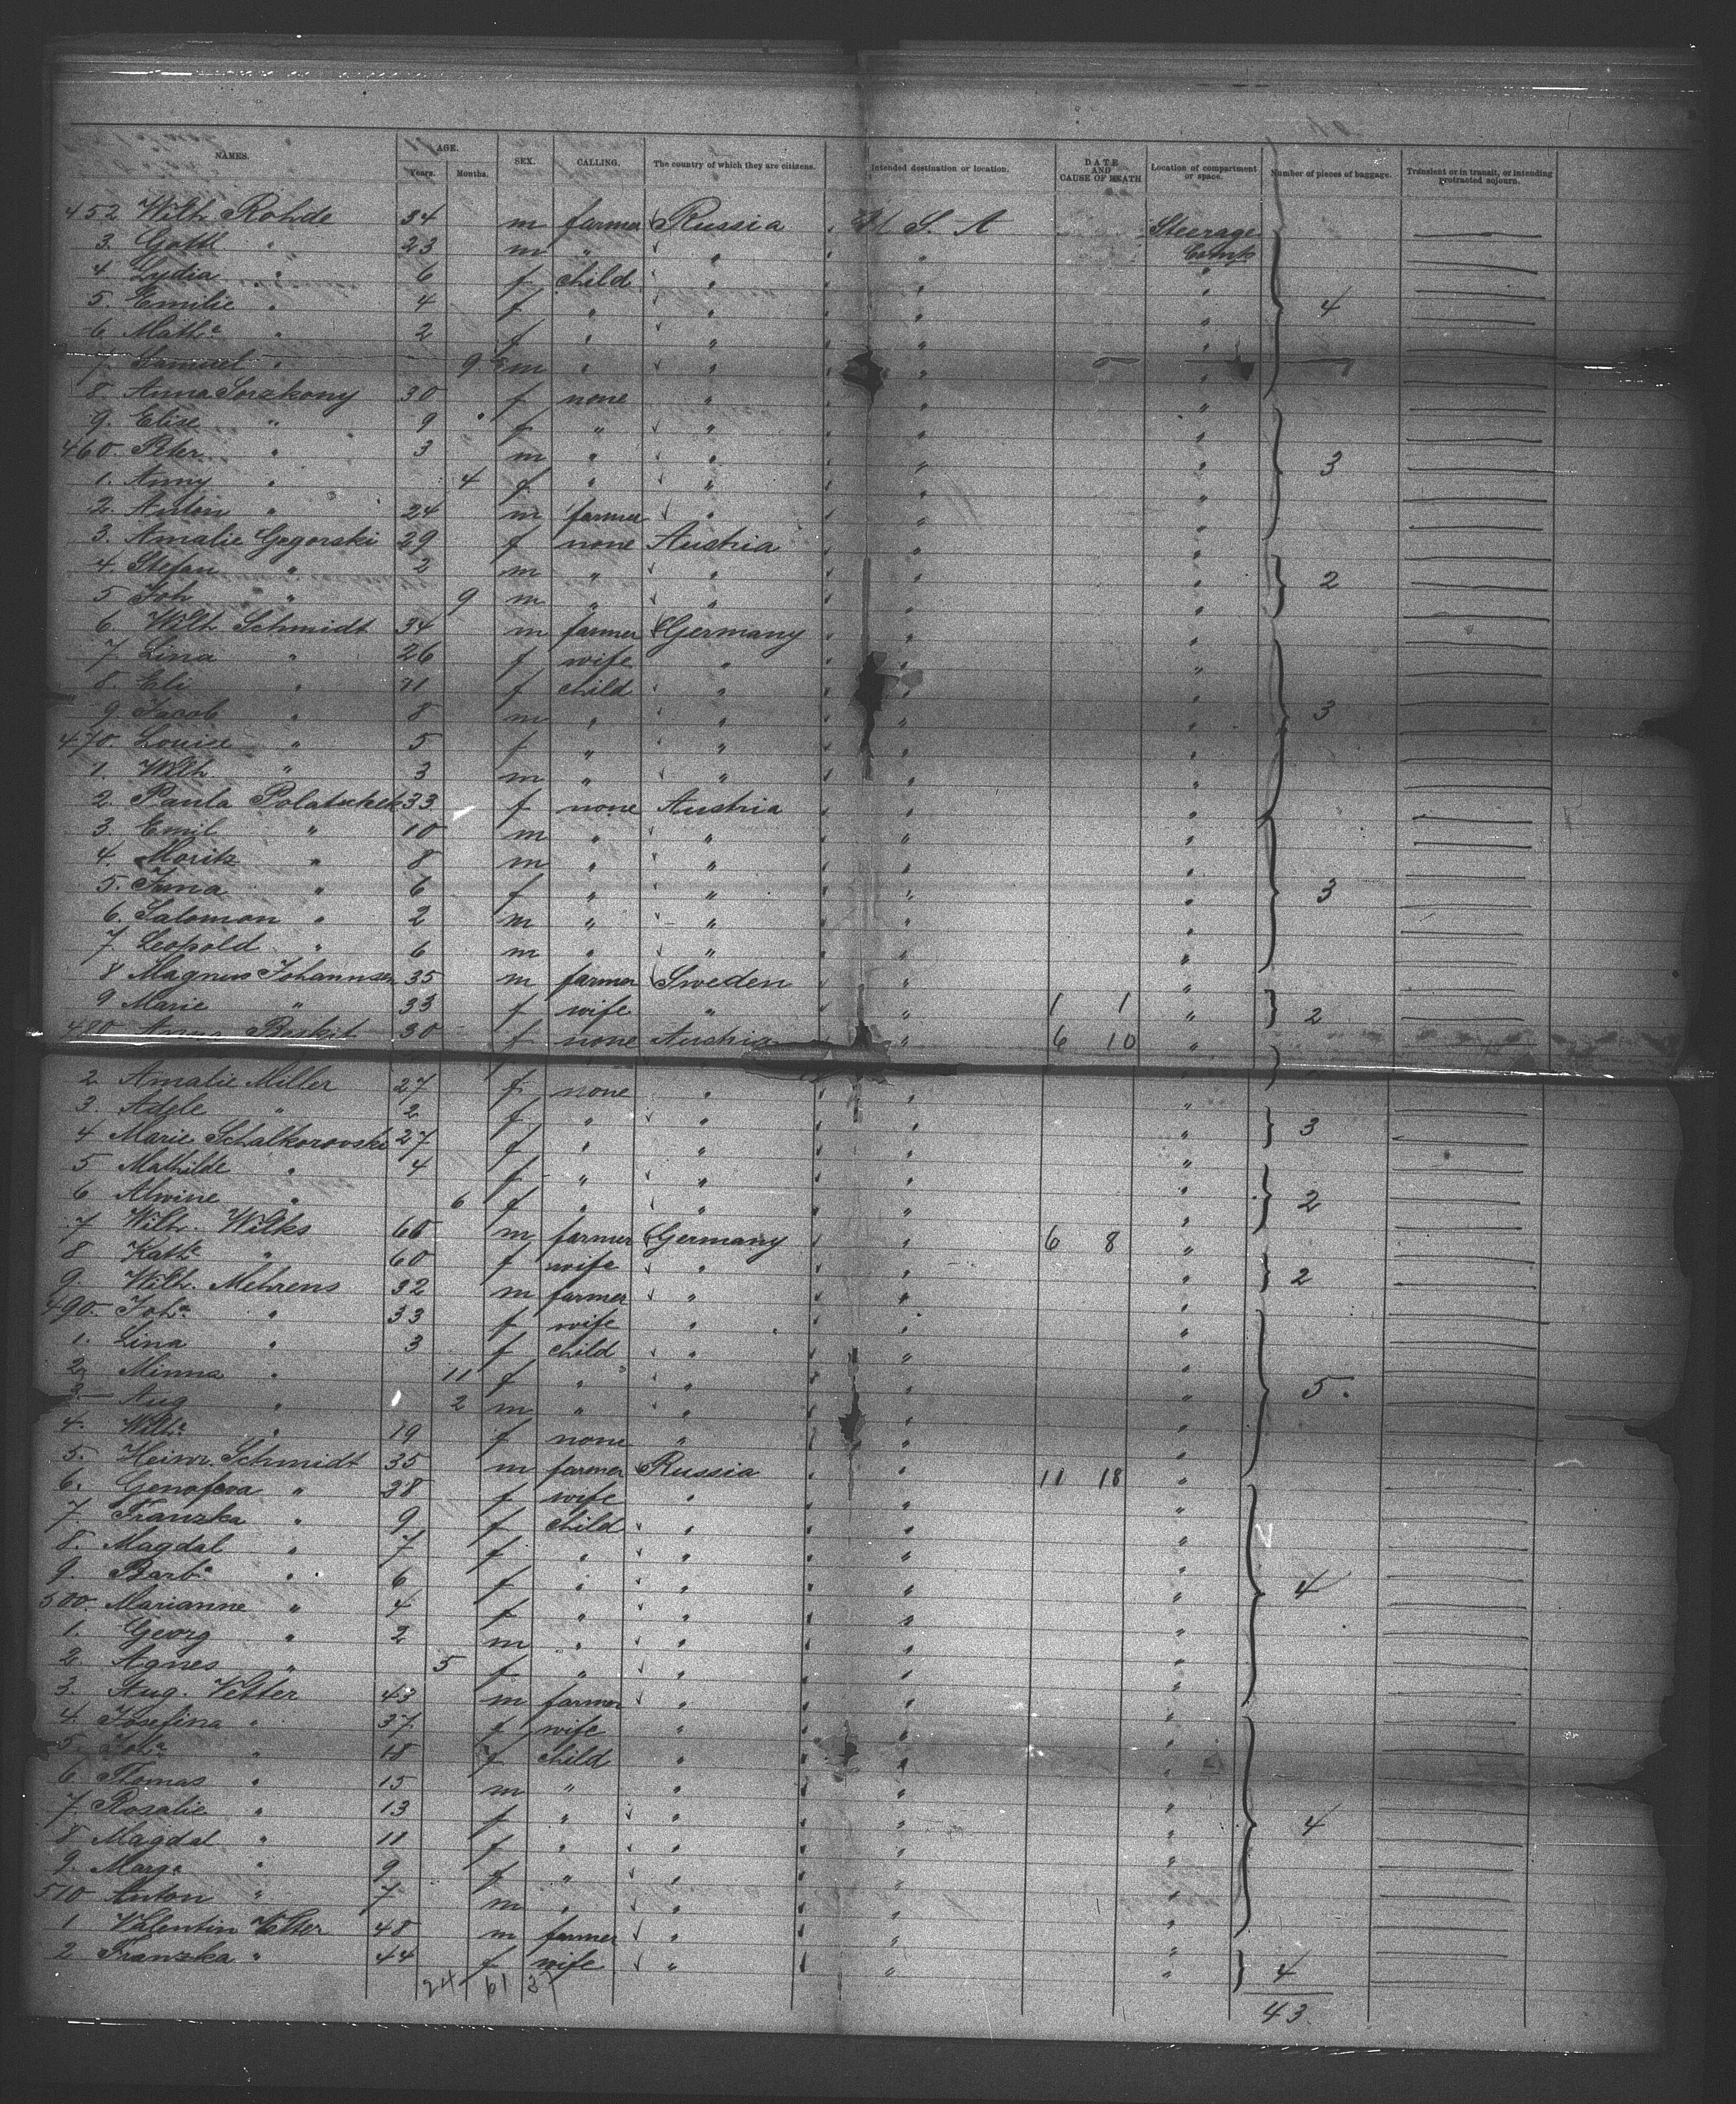 NAMES. AGE. Years. Months. SEX. CALLING. The country of which they are citizens. Intended destination or location. DATE AND CAUSE OF DEATH Location of compartment or space. Number of pieces of baggage. Transient or in transit, or intending protracted sojourn.
452 Wilh Rohde 34 m farmer Russia U S. A Steerage
3. Gottl " 23 m " " " Comp
4. Lydia " 6 f child " " "
5. Emilie " 4 f " " " " 4
6 Mathe " 2 f " " " "
7. Samuel " 9 m " " " "
8. Anna Sorzkony 30 f none " " "
9. Elise " 9 f " " " "
460. Peter " 3 m " " " " 3
1. Anny " 4 f " " " "
2. Anton " 24 m farmer " " "
3. Amalie Gogorski 29 f none Austria " "
4. Stefan " 2 m " " " " 2
5 Joh " 9 m " " " "
6. Wilh Schmidt 34 m farmer Germany " "
7. Lina " 26 f wife " " "
8. Eli " 11 f child " " "
9. Jacob " 8 m " " " " 3
470. Louise " 5 f " " " "
1. Wilh " 3 m " " " "
2. Paula Polatschek 33 f none Austria " "
3. Emil " 10 m " " " "
4. Moritz " 8 m " " " "
5. Irma " 6 f " " " " 3
6. Salomon " 2 m " " " "
7. Leopold " 6 m " " " "
8 Magnus Johannsen 35 m farmer Sweden " "
9 Marie " 33 f wife " " 1 1 " 2
480 Anna 30 f none Austria " 6 10 "
2 Amalie Miller 27 f none " " "
3. Adele " 2 f " " " " 3
4 Marie Schalkorovski 27 f " " " "
5 Mathilde " 4 f " " " "
6 Alwine " 6 f " " " " 2
7 Wilh. Wilks 60 m farmer Germany " 6 8 "
8 Kathe " 60 f wife " " " 2
9. Wilh. Mehrens 32 m farmer " " "
490. Joha " 33 f wife " " "
1. Lina " 3 f child " " "
2. Minna " 11 f " " " "
3. Aug " 2 m " " " " 5.
4. Wilhe " 19 f none " " "
5. Heinr. Schmidt 35 m farmer Russia " 11 18 "
6. Genofeva " 38 f wife " " "
7. Franzka " 9 f child " " "
8. Magdal " 7 f " " " "
9. Barba " 6 f " " " " 4
500. Marianne " 4 f " " " "
1. Georg " 2 m " " " "
2 Agnes " 5 f " " " "
3. Aug. Vetter 43 m farmer " " "
4. Josefina " 37 f wife " " "
5. Joha " 18 f child " " "
6 Thomas " 15 m " " " "
7 Rosalie " 13 f " " " "
8 Magdal " 11 f " " " " 4
9. Marga " 9 f " " " "
510 Anton " 7 m " " " "
1 Valentin Vetter 48 m farmer " " "
2 Franzka " 44 f wife " " " 4
24 61 37 43.